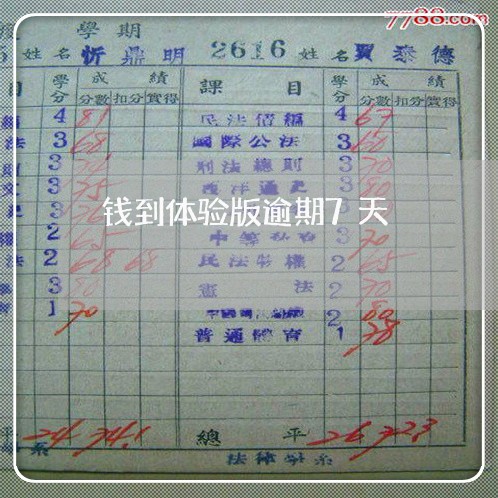 7788.com
學期
姓名 忻鼎明 2616 姓名 賈泰德
目 學分 成績 課目 學分 成績
分數 扣分 實得 分數 扣分 實得
4 81 民法債編 4 67
法 3 68 國際公法 3 60
3 刑法總則 3 70
3 75 西洋通史 80
钱到体验版逾期7 天
2 65 3 70
法 2 68 68 民法物權 2 65
3 80 憲法 2 70
1 70 2 80
普通體育 1 78
平 24 74.1 總平 26 72.3
系 法律學系